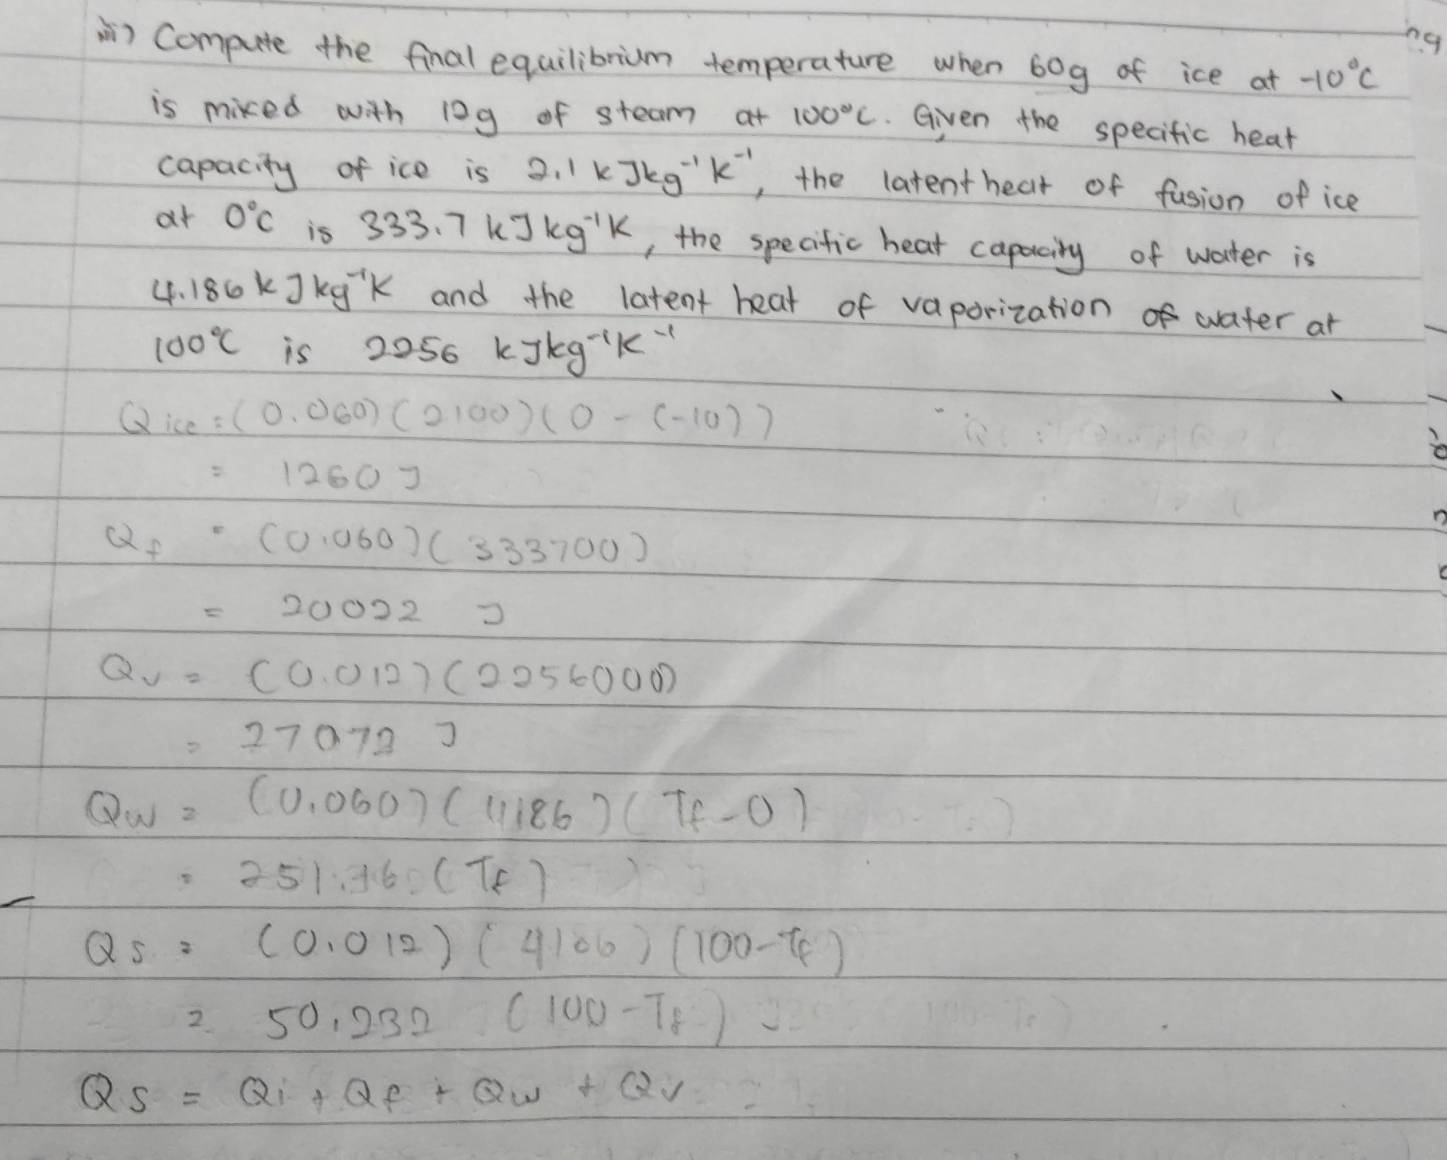 iii) Compute the final equilibrium temperature when 60g of ice at -10°C
is mixed with 12g of steam at 100°C. Given the specific heat
capacity of ice is 2.1 kJkg⁻¹K⁻¹, the latent heat of fusion of ice
at 0°C is 333.7 kJkg⁻¹K, the specific heat capacity of water is
4.186 kJkg⁻¹K and the latent heat of vaporization of water at
100°C is 2256 kJkg⁻¹K⁻¹
Qice = (0.060)(2100)(0 - (-10))
= 1260 J
Qf = (0.060)(333700)
= 20022 J
Qv = (0.012)(2256000)
= 27072 J
Qw = (0.060)(4186)(Tf - 0)
= 251.16 (Tf)
Qs = (0.012)(4186)(100 - Tf)
= 50.232 (100 - Tf) J
Qs = Qi + Qf + Qw + Qv